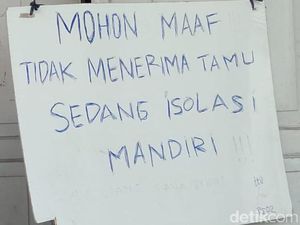 MOHON MAAF
TIDAK MENERIMA TAMU
SEDANG ISOLASI
MANDIRI !!!
detikcom